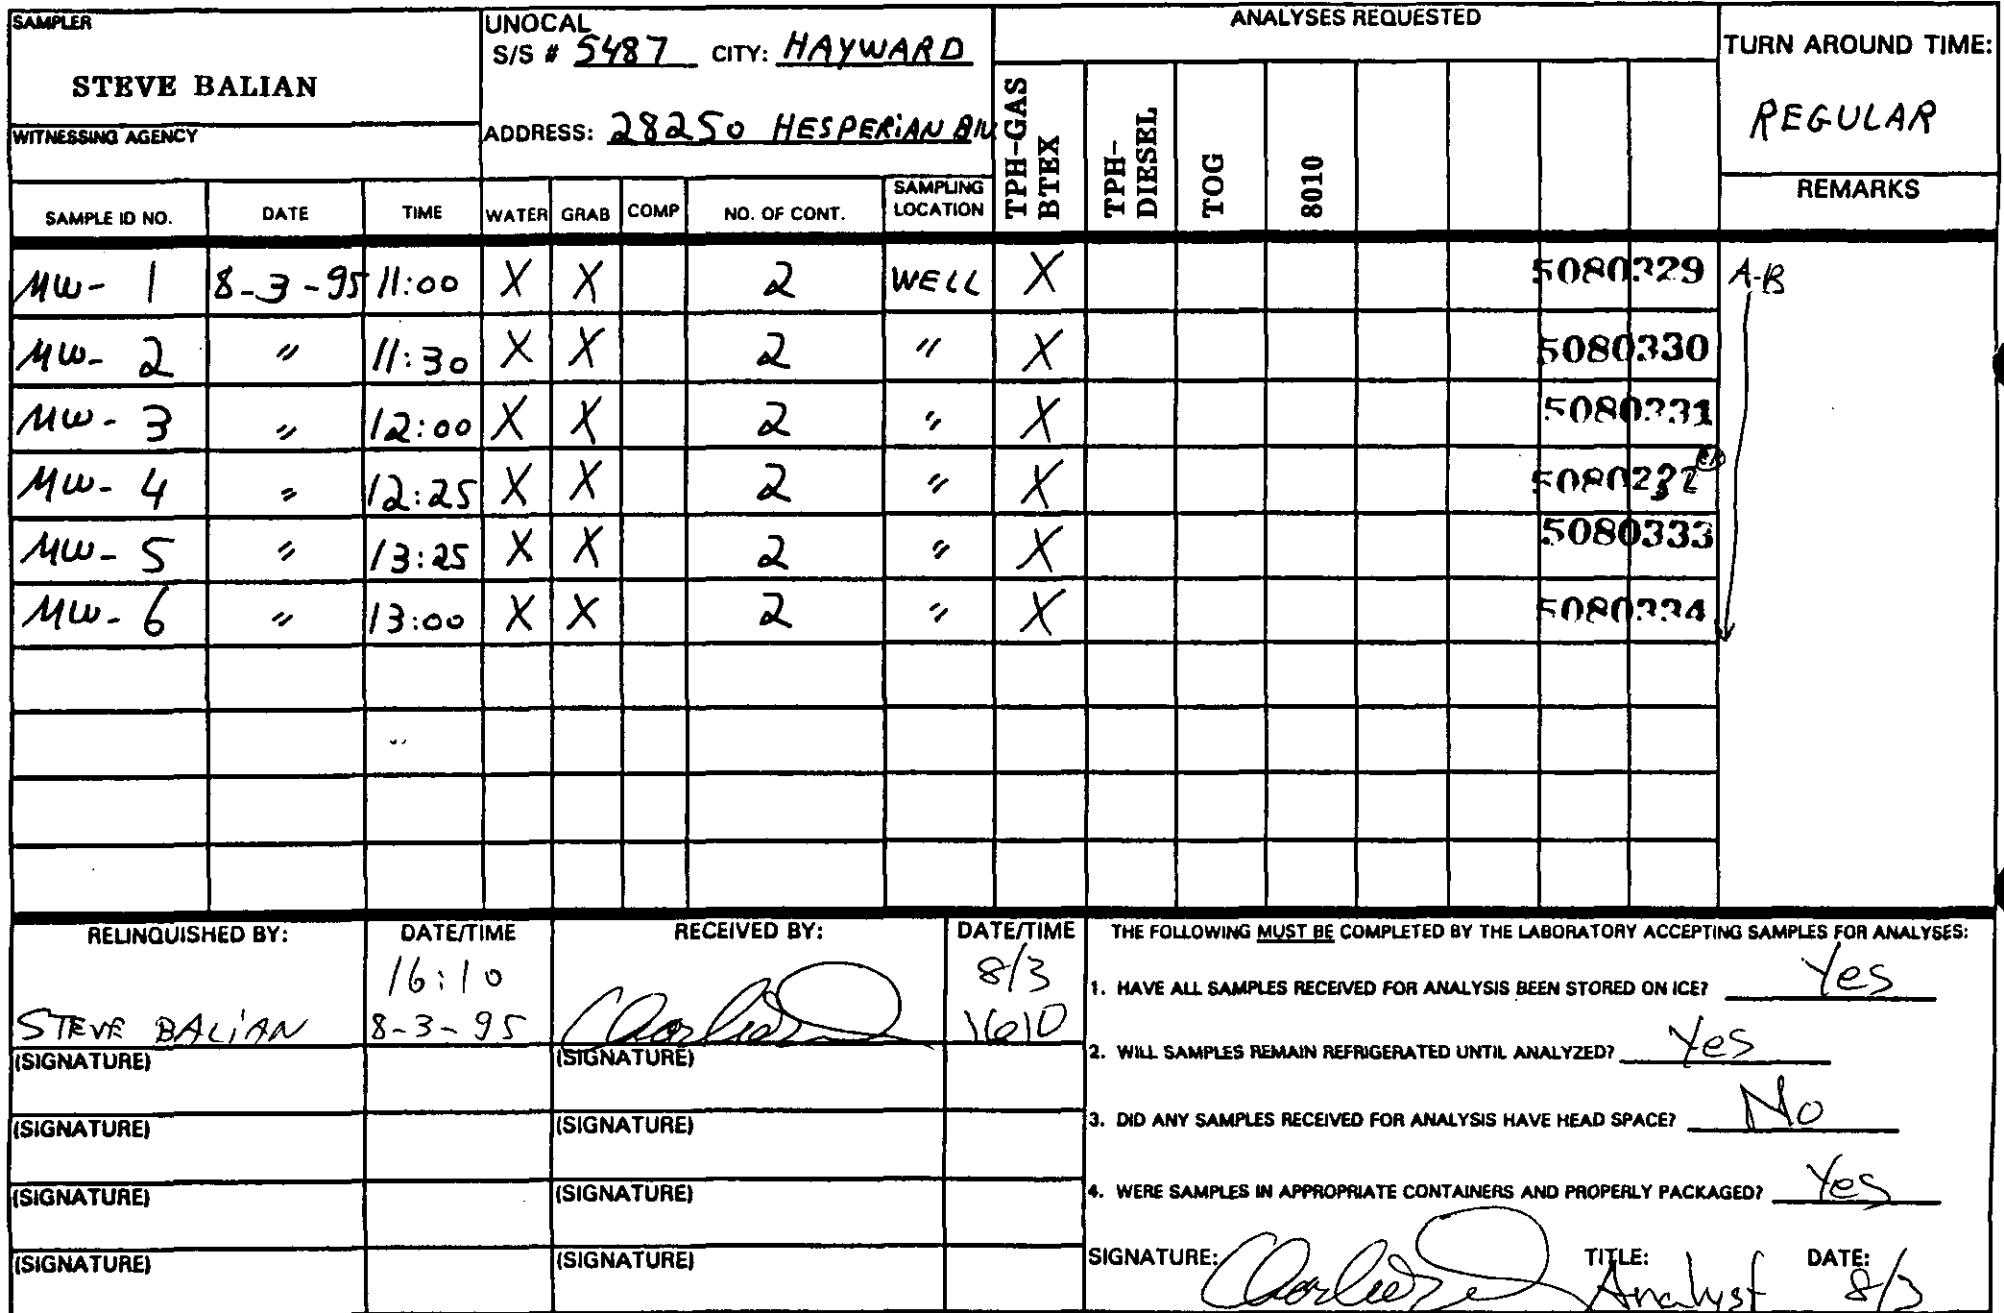 SAMPLER
STEVE BALIAN
WITNESSING AGENCY
UNOCAL
S/S # 5487 CITY: HAYWARD
ADDRESS: 28250 HESPERIAN
ANALYSES REQUESTED
TPH-GAS
BTEX
TPH-
DIESEL
TOG
8010
TURN AROUND TIME:
REGULAR
REMARKS
SAMPLE ID NO. DATE TIME WATER GRAB COMP NO. OF CONT. SAMPLING LOCATION
MW- 1 8-3-95 11:00 X X 2 WELL X 5080329 A-B
MW- 2 " 11:30 X X 2 " X 5080330
MW- 3 " 12:00 X X 2 " X 5080331
MW- 4 " 12:25 X X 2 " X
MW- 5 " 13:25 X X 2 " X 5080333
MW- 6 " 13:00 X X 2 " X 5080334
RELINQUISHED BY: DATE/TIME RECEIVED BY: DATE/TIME
STEVE BALIAN 16:10 8-3-95 8/3 1610
(SIGNATURE) (SIGNATURE)
(SIGNATURE) (SIGNATURE)
(SIGNATURE) (SIGNATURE)
(SIGNATURE) (SIGNATURE)
THE FOLLOWING MUST BE COMPLETED BY THE LABORATORY ACCEPTING SAMPLES FOR ANALYSES:
1. HAVE ALL SAMPLES RECEIVED FOR ANALYSIS BEEN STORED ON ICE? Yes
2. WILL SAMPLES REMAIN REFRIGERATED UNTIL ANALYZED? Yes
3. DID ANY SAMPLES RECEIVED FOR ANALYSIS HAVE HEAD SPACE? No
4. WERE SAMPLES IN APPROPRIATE CONTAINERS AND PROPERLY PACKAGED? Yes
SIGNATURE: TITLE: Analyst DATE: 8/3